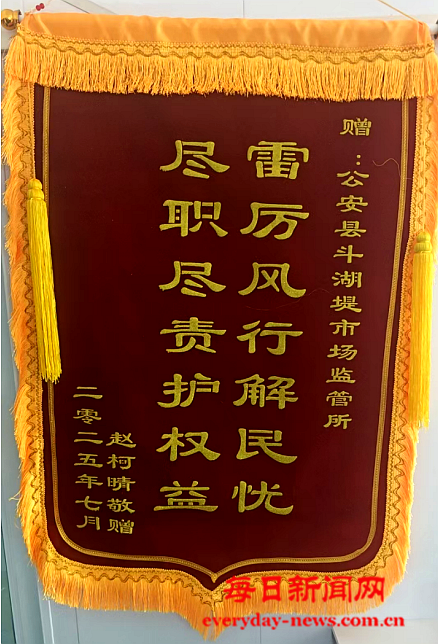 赠：公安县斗湖堤市场监管所
雷厉风行解民忧
尽职尽责护权益
赵柯晴敬赠
二零二五年七月
每日新闻网
everyday-news.com.cn